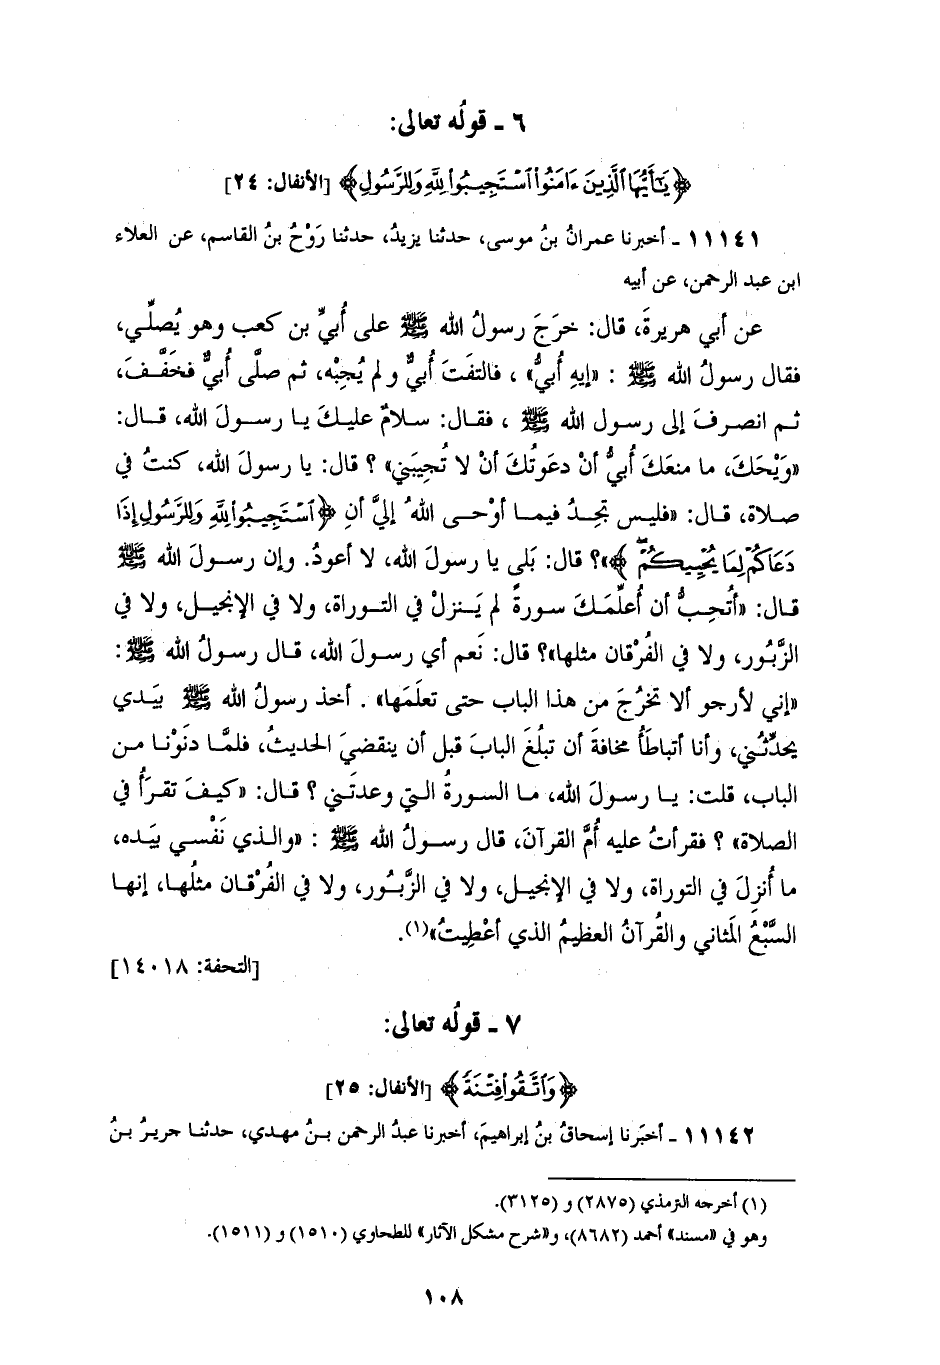 ٦ ـ قولُه تعالى:
﴿يَٰٓأَيُّهَا ٱلَّذِينَ ءَامَنُوا۟ ٱسْتَجِيبُوا۟ لِلَّهِ وَلِلرَّسُولِ﴾ [الأنفال: ٢٤]
١١١٤١ ـ أخبرنا عمرانُ بنُ موسى، حدثنا يزيدُ، حدثنا رَوْحُ بنُ القاسم، عن العلاء
ابن عبد الرحمن، عن أبيه
عن أبي هريرةَ، قال: خرَجَ رسولُ الله ﷺ على أُبيِّ بن كعب وهو يُصلِّي،
فقال رسولُ الله ﷺ : «إيهِ أُبيُّ» ، فالتفَتَ أُبيٌّ ولم يُجِبْه، ثم صلَّى أُبيٌّ فخَفَّفَ،
ثم انصرفَ إلى رسول الله ﷺ ، فقال: سلامٌ عليكَ يا رسولَ الله، قال:
«وَيْحَكَ، ما منعَكَ أُبيُّ أنْ دعَوتُكَ أنْ لا تُجيبَني» ؟ قال: يا رسولَ الله، كنتُ في
صلاة، قال: «فليس تجِدُ فيما أوْحى اللهُ إليَّ أنِ ﴿ٱسْتَجِيبُوا۟ لِلَّهِ وَلِلرَّسُولِ إِذَا
دَعَاكُمْ لِمَا يُحْيِيكُمْ﴾»؟ قال: بَلى يا رسولَ الله، لا أعودُ. وإن رسولَ الله ﷺ
قال: «أتُحِبُّ أن أُعلِّمَكَ سورةً لم يَنزلْ في التوراة، ولا في الإنجيل، ولا في
الزَّبُور، ولا في الفُرْقان مثلها»؟ قال: نَعم أي رسولَ الله، قال رسولُ الله ﷺ:
«إني لأرجو ألا تخرُجَ من هذا الباب حتى تعلَمَها» . أخذ رسولُ الله ﷺ بيَدي
يحدِّثُني، وأنا أتباطَأُ مخافةَ أن تبلُغَ البابَ قبل أن ينقضيَ الحديثُ، فلمَّا دنَوْنا من
الباب، قلت: يا رسولَ الله، ما السورةُ التي وعدتَني ؟ قال: «كيفَ تقرَأُ في
الصلاة» ؟ فقرأتُ عليه أُمَّ القرآنَ، قال رسولُ الله ﷺ : «والذي نَفْسي بيَده،
ما أُنزِلَ في التوراة، ولا في الإنجيل، ولا في الزَّبُور، ولا في الفُرْقان مثلُها، إنها
السَّبْعُ المَثاني والقُرآنُ العظيمُ الذي أعْطِيتُ»(١).
[التحفة: ١٤٠١٨]
٧ ـ قولُه تعالى:
﴿وَٱتَّقُوا۟ فِتْنَةً﴾ [الأنفال: ٢٥]
١١١٤٢ ـ أخبَرنا إسحاقُ بنُ إبراهيمَ، أخبرنا عبدُ الرحمن بنُ مهدي، حدثنا جريرُ بنُ
(١) أخرجه الترمذي (٢٨٧٥) و (٣١٢٥).
وهو في «مسند» أحمد (٨٦٨٢)، و«شرح مشكل الآثار» للطحاوي (١٥١٠) و (١٥١١).
١٠٨